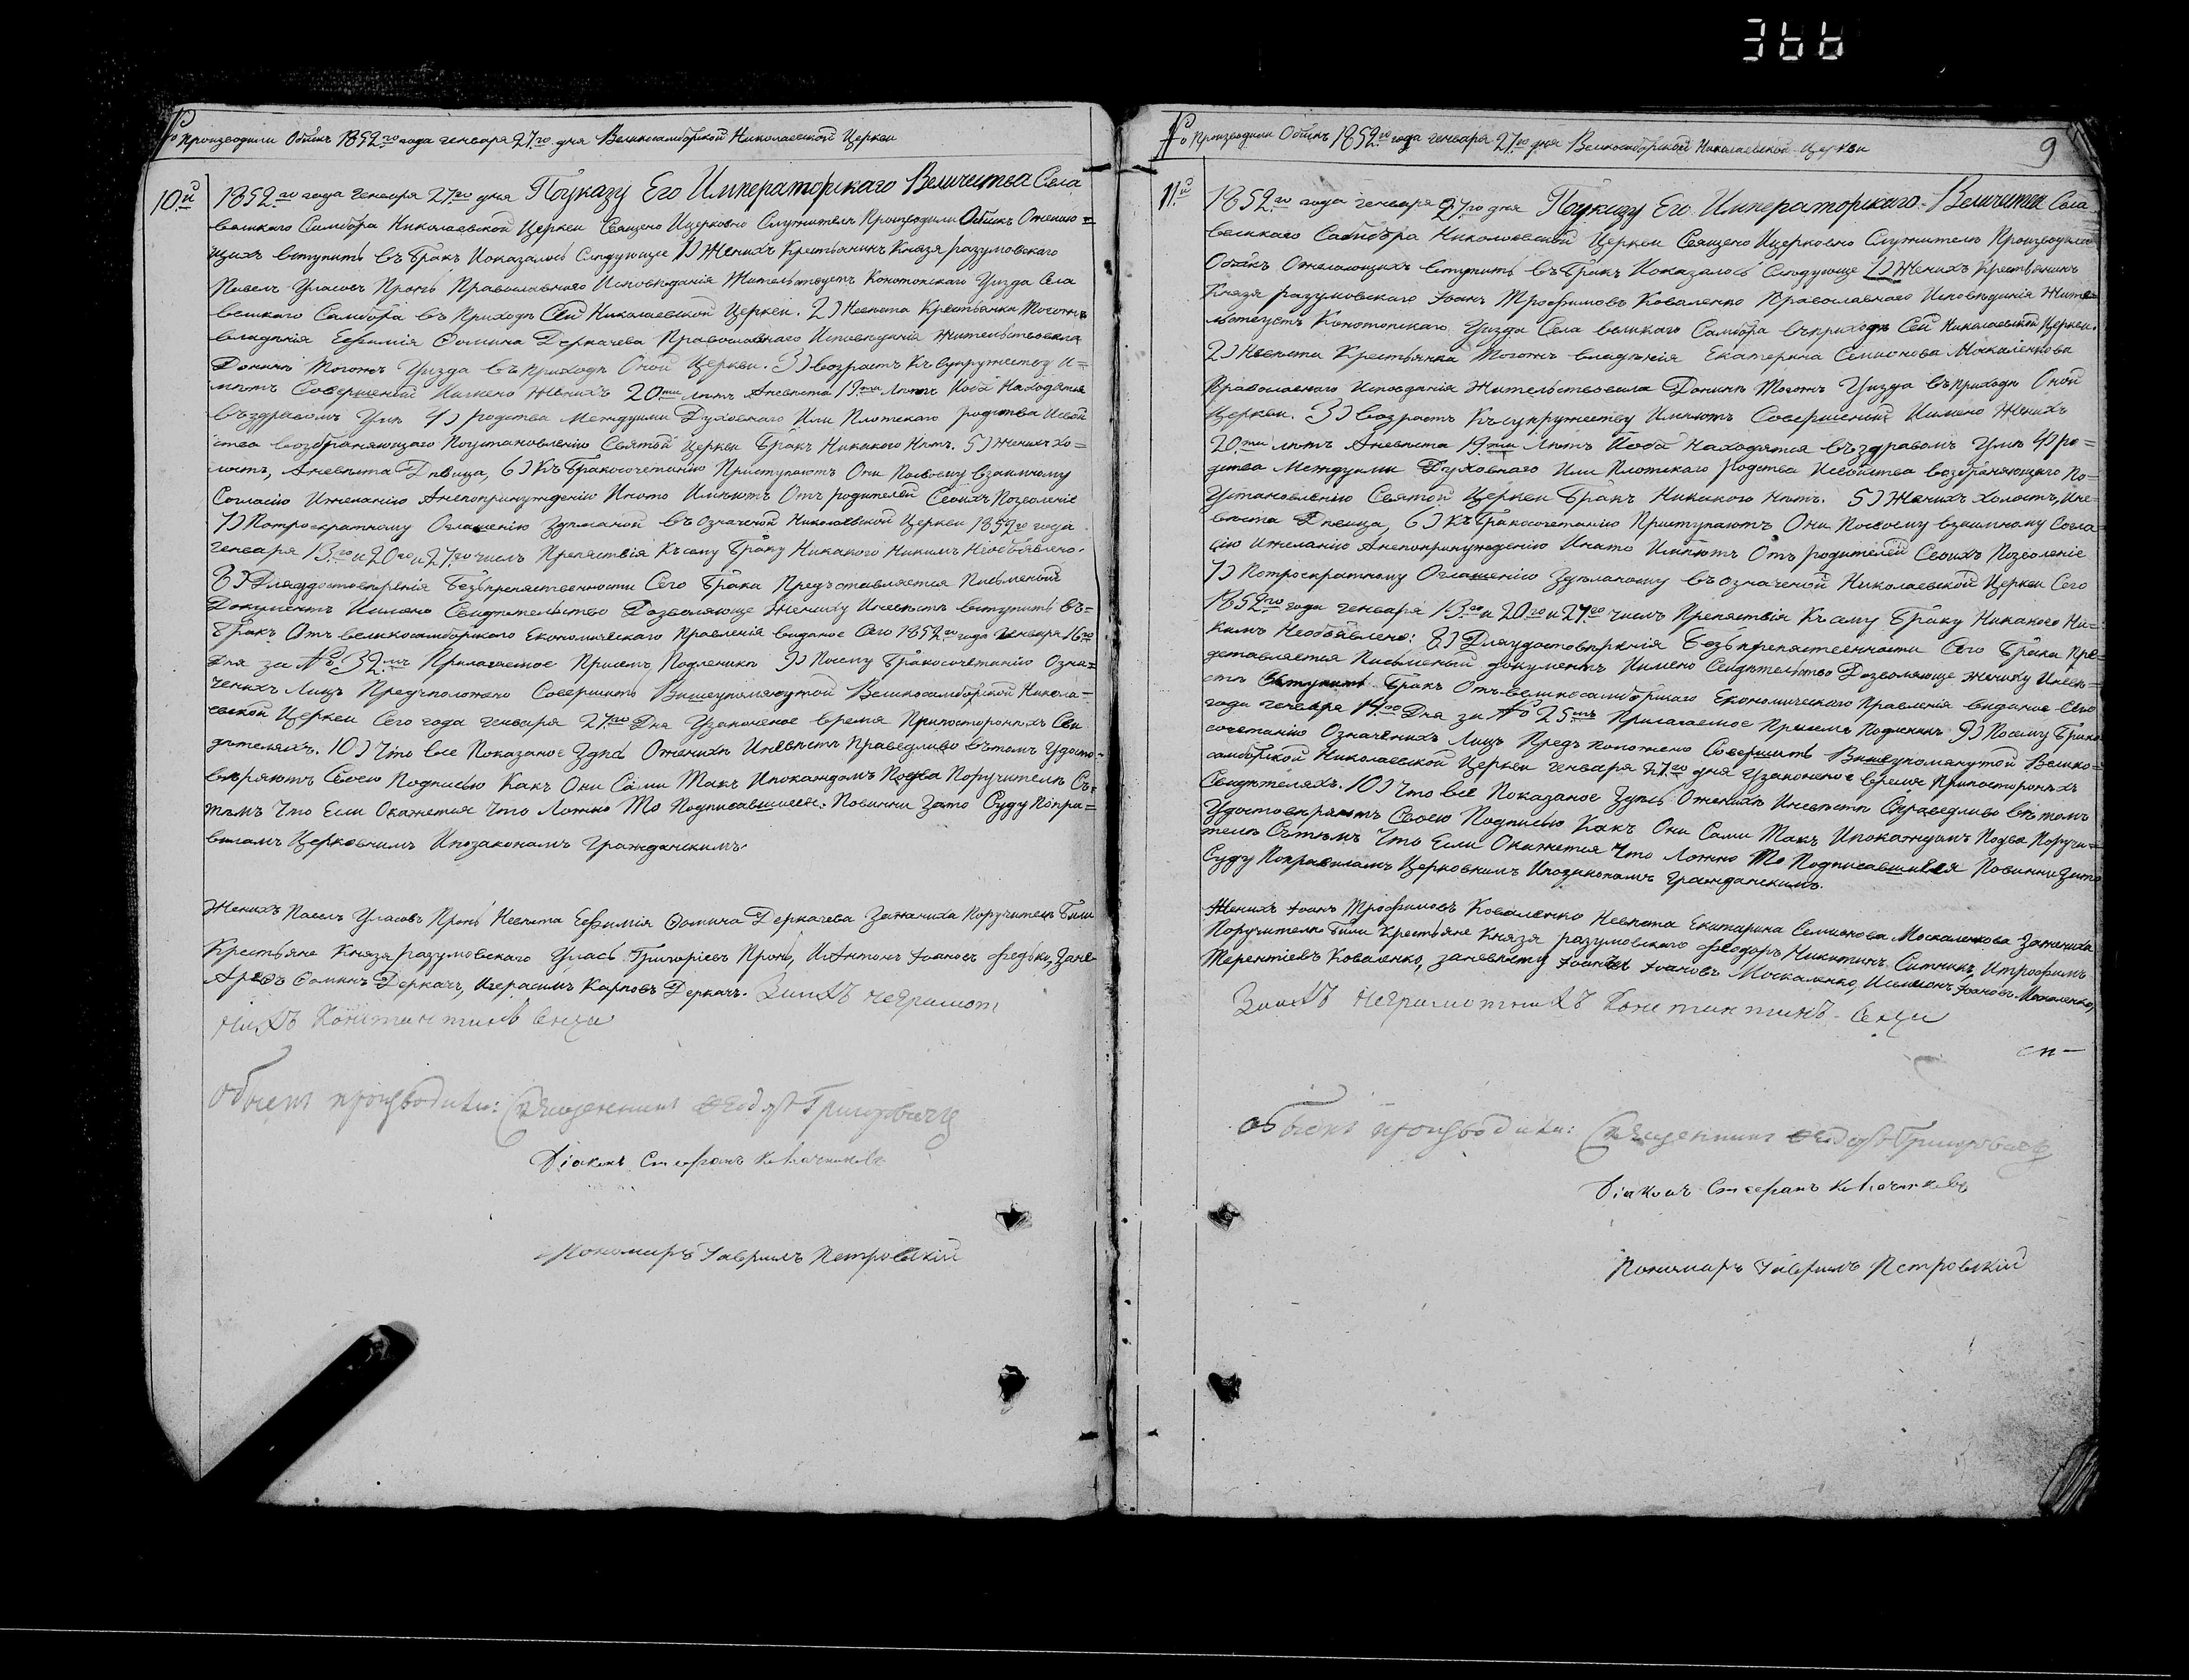 366
Производили Обискъ 1852го года генваря 27го дня Великосамборской Николаевской Церкви
10й
1852го года генваря 27го дня Поуказу Его Императорскаго Величества Села
великаго Самбора Николаевской Церкви Священо Ицерковно Служители Производили Обискъ Ожелаю=
щихъ вступить въ бракъ Иоказалось Следующее 1) Женихъ Крестьянинъ Князя разумовскаго
Павелъ Уласовъ Пронь Православнаго Исповеданія Жительствуетъ Конотопскаго Уизда Села
великаго Самбора въ Приходѣ Сей Николаевской Церкви. 2) Невѣста Крестьянка Тогожъ
владѣнія Евфимія Фомина Деркачева Православнаго Исповѣданія Жительствовала
Донинѣ Тогожъ Уизда въ приходѣ Оной Церкви. 3) возрастъ Къ Супружеству И=
мѣютъ Совершеный Иимено Женихъ 20ти лѣтъ Аневѣста 19ти лѣтъ Иоба Находятся
въздравомъ Умѣ 4) родства Междуими Духовнаго Или Плотскаго родства Исвой
ства возбраняющаго Поустановленію Святой Церкви Бракъ Никакого Нѣтъ. 5) Женихъ Хо=
лостъ, Аневѣста Дѣвица, 6) Къ Бракосочетанію Приступаютъ Они Посвоему взаимному
Согласію Ижеланію Анепопринужденію Инато Имѣютъ Отъ родителей Своихъ Позволеніе
7) Потроекратному Оглашенію въ Означеной Николаевской Церкви 1852го года
генваря 13го и 20го и 27го числъ Препяствія Къ сему браку Никакого Никимъ Необъявлено.
8) Дляудостовѣренія безъпрепяственности Сего брака Предъставляется Писменый
Документъ Иимено Свидѣтельство Дозволяюще Жениху Иневѣстѣ вступить въ=
бракъ Отъ великосамборскаго Економическаго Правленія виданое Сего 1852го года генваря 16го
дня за №. 32мъ Прилагаемое Присемъ Подленикъ 9) Посему бракосочетанію Озна=
ченихъ Лицъ Предъположено Совершить Вишеупомянутой Великосамборской Никола=
евской Церкви Сего года генваря 27го Дня Узаконеное время Припостороннихъ Сви
дѣтеляхъ. 10) Что все Показаное Здѣсь Оженихѣ Иневѣстѣ Праведливо вътомъ Удосто=
вѣряютъ Своею Подписью Какъ Они Сами Такъ Ипокаждомъ Подва Поручителѣ Съ=
тѣмъ Что Если Окажется Что Ложно То Подписавшиеся Повинни Зато Суду Попра=
виламъ Церковнимъ Ипозаконамъ Гражданскимъ.
Женихъ Павелъ Уласовъ Пронь Невѣста Евфимія Фомина Деркачева Зажениха Поручители Били
Крестьяне Князя Разумовскаго Уласъ Григоріевъ Пронь, ИАнтонъ Іоановъ Федько, Заневѣ
Фоминъ Деркачъ, Игерасимъ Карповъ Деркачъ. Заихъ неграмот
нихъ Константинъ
Обыскъ производили: Священникъ Феодоръ Григоровичъ
Діаконъ Стефанъ
Пономаръ Гавриилъ Петровскій
Производили Обискъ 1852го года генваря 27го дня Великосамборской Николаевской Церкви
9
11й
1852го года генваря 27го дня Поуказу Его Императорскаго Величества Села
великаго Самбора Николаевской Церкви Священо Ицерковно Служители Производили
Обискъ Ожелающихъ вступить въ Бракъ Иоказалось Следующе 1) Женихъ Крестьянинъ
Князя разумовскаго Іоанъ Трофимовъ Коваленко Православнаго Исповѣданія Жите=
льствуетъ Конотопскаго Уизда Села великаго Самбора въприходѣ Сей Николаевской Церкви.
2) Невѣста Крестьянка Тогожъ владѣнія Екатерина Семионова Москаленкова
Православнаго Исповѣданія Жительствовала Донинѣ Тогожъ Уизда въприходѣ Оной
Церкви. 3) возрастъ Късупружеству Имѣютъ Совершений Иимено Женихъ
20ти лѣтъ Аневѣста 19ти лѣтъ Иоба Находятся въздравомъ Умѣ 4) ро=
дства Междуими Духовнаго Или Плотскаго родства Исвойства возбраняющаго По=
Установленію Святой Церкви Бракъ Никакого Нѣтъ. 5) Женихъ Холостъ, Ане=
вѣста Дѣвица, 6) Къ Бракосочетанію Приступаютъ Они Посвоему взаимному Согла=
сію Ижеланію Анепопринужденію Инато Имѣютъ Отъ родителей Своихъ Позволеніе
7) Потроекратному Оглашенію Здѣланому въ означеной Николаевской Церкви Сего
1852го года генваря 13го и 20го и 27го числъ Препяствія Къ сему Браку Никакого Ни=
кимъ Необъявлено: 8) Дляудостовѣренія Безъпрепяственности Сего Брака Пре=
дставляется Писменый документъ Иимено Свидѣтельство Дозволяюще Жениху Иневѣ=
стѣ вступить Бракъ Отъ великосамборскаго Економическаго Правленія виданое Сего
года генваря 14го Дня за № 25мъ Прилагаемое Присемъ Подленикъ 9) Посему Брако
сочетанію Означенихъ Лицъ Предъположено Совершить Вишеупомянутой Велико=
самборской Николаевской Церкви генваря 27го дня Узаконеное время Припосторонихъ
Свидѣтеляхъ. 10) Что все Показаное Здѣсь Оженихѣ Иневѣстѣ Справедливо вътомъ
Удостовѣряютъ Своею Подписью Какъ Они Сами Такъ Ипокаждомъ Подва Поручи=
телѣ Сътѣмъ Что Если Окажется Что Ложно То Подписавшиеся Повинни Зато
Суду Поправиламъ Церковнимъ Ипозаконамъ Гражданскимъ.
Женихъ Іоанъ Трофимовъ Коваленко Невѣста Екатарина Семионова Москаленкова Зажениха
Поручители Били Крестьяне Князя разумовскаго Феодоръ Никитинъ Ситникъ, Итрофимъ
Терентіевъ Коваленко, заневѣсту Іоановъ Москаленко, Исимионъ Іоановъ Москаленко,
Заихъ неграмотнихъ Константинъ
Обыскъ производили: Священникъ Феодоръ Григоровичъ
Діаконъ Стефанъ
Пономаръ Гавриилъ Петровскій